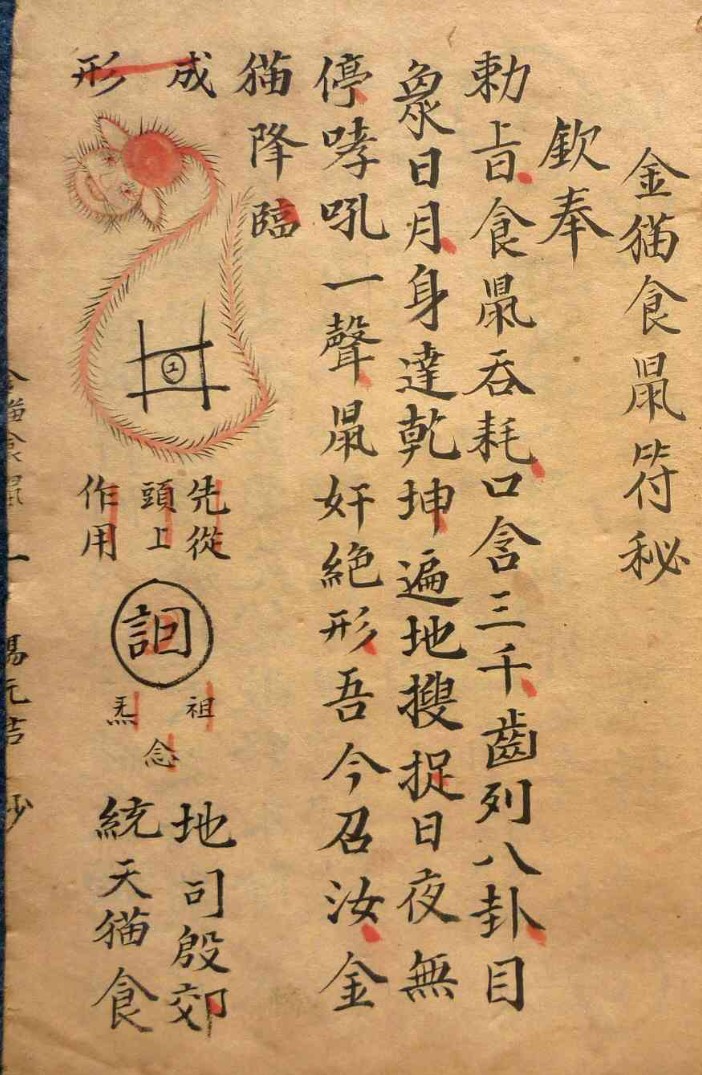 金猫食鼠符秘
欽奉
勅旨食鼠吞耗口含三千齒列八卦目
泉日月身達乾坤遍地搜捉日夜無
停哮吼一聲鼠奸絕形吾今召汝金
猫降臨
成
形
先從
頭上
作用
祖
炁
念
地司殷郊
統天猫食